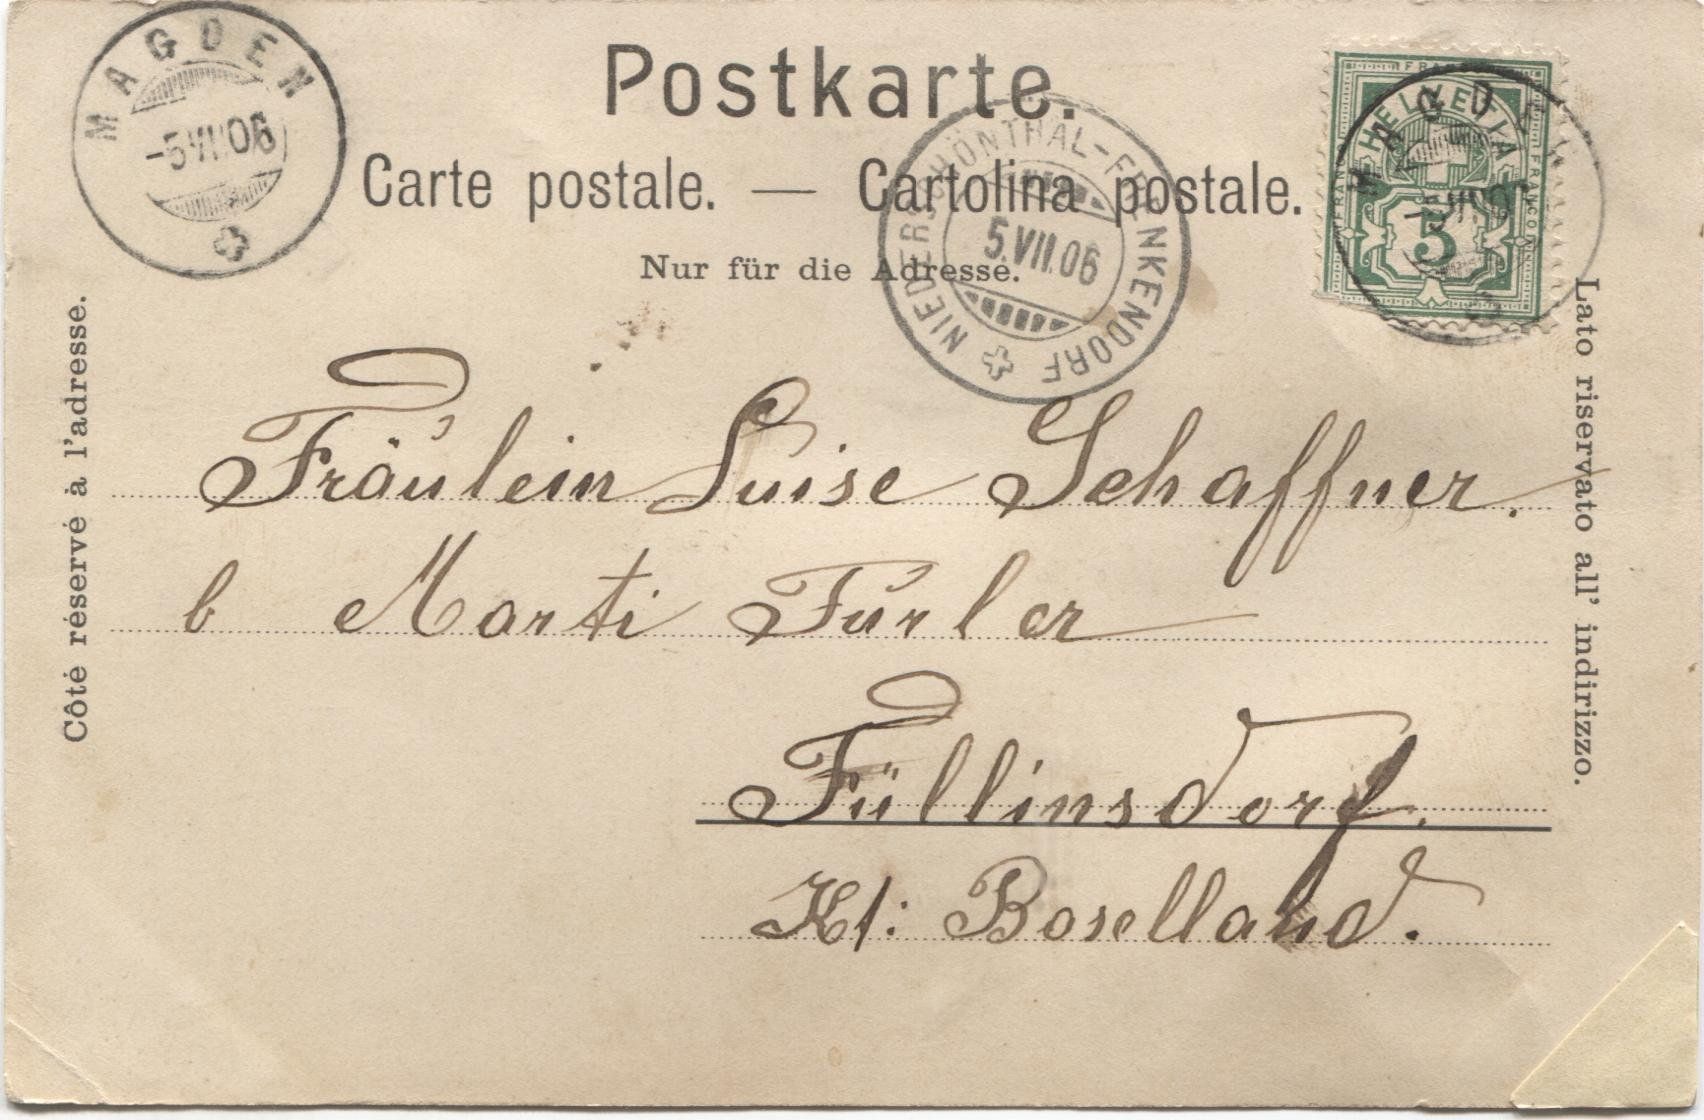 MAGDEN
-5.VII.06
Postkarte.
Carte postale. — Cartolina postale.
Nur für die Adresse.
NIEDERSCHÖNTHAL-FRENKENDORF
5.VII.06
FRANCO
HELVETIA
5
MAGDEN
Côté réservé à l'adresse.
Lato riservato all' indirizzo.
Fräulein Luise Schaffner.
b Marti Fürler
Füllinsdorf.
Kt: Baselland.